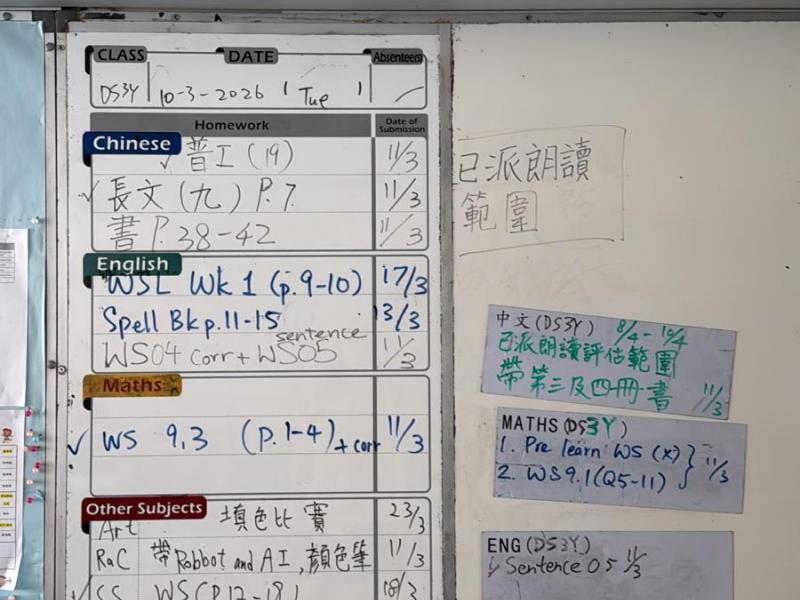 CLASS DATE Absenteers
DS3Y 10-3-2026 Tue
Homework Date of Submission
Chinese
普工(19) 11/3
長文(九) P.7 11/3
書 P.38-42 11/3
English
WSL Wk 1 (p.9-10) 17/3
Spell Bk p.11-15 13/3
WS04 corr + WS05 sentence 11/3
Maths
WS 9.3 (p.1-4) + corr 11/3
Other Subjects
Art 填色比賽 23/3
RaC 帶 Robbot and AI, 顏色筆 11/3
WS (P.12-18) 18/3
已派朗讀
範圍
中文(DS3Y) 8/4-10/4
已派朗讀評估範圍
帶第三及四冊書 11/3
MATHS (DS3Y)
1. Pre learn WS (x)
2. WS 9.1 (Q5-11) 11/3
ENG (DS3Y)
Sentence 05 11/3